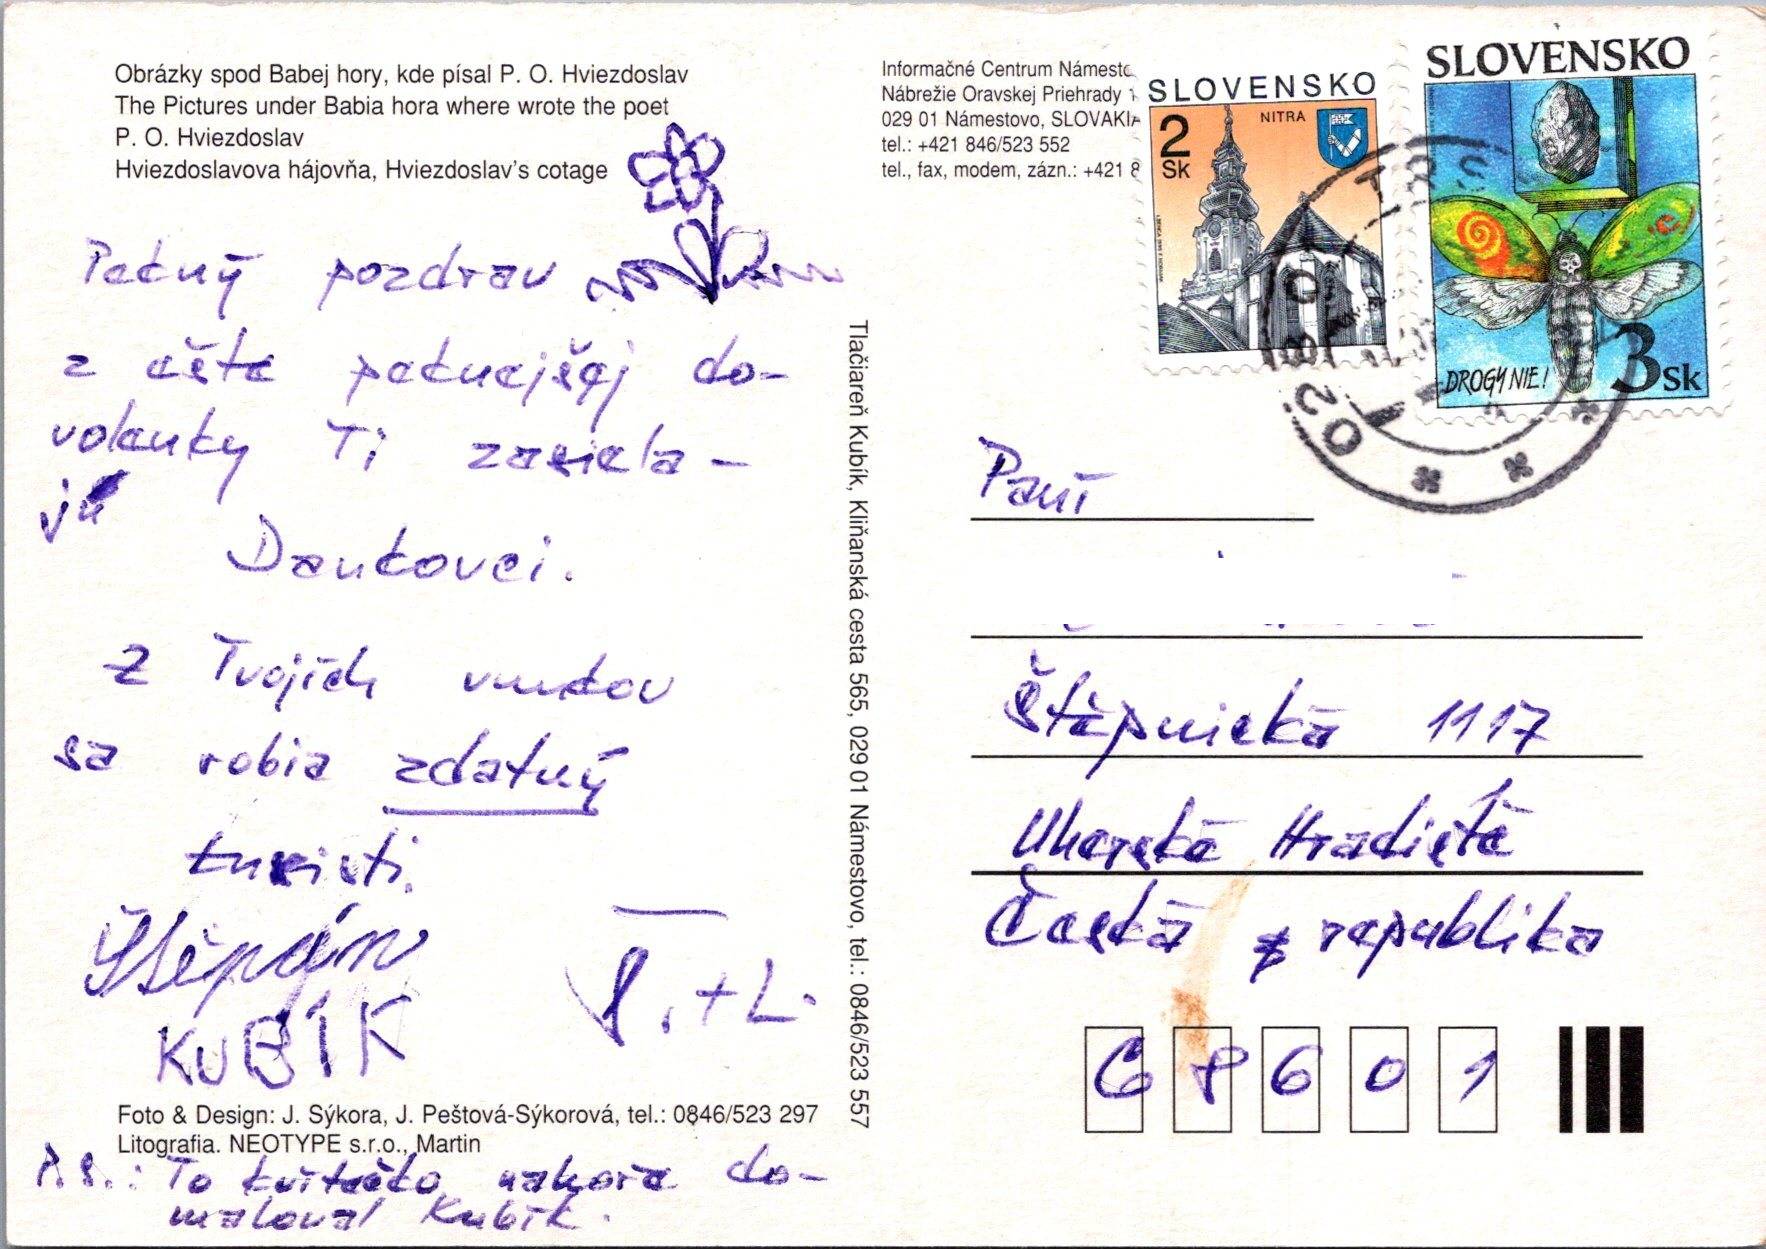 Obrázky spod Babej hory, kde písal P. O. Hviezdoslav
The Pictures under Babia hora where wrote the poet
P. O. Hviezdoslav
Hviezdoslavova hájovňa, Hviezdoslav's cotage
Pekný pozdrav
z ešte peknejšej do-
volenky Ti zasiela-
jú
Dankovci.
Z Tvojich vnukov
sa robia zdatný
turisti.
Štěpán
KUBÍK
P. + L.
Foto & Design: J. Sýkora, J. Peštová-Sýkorová, tel.: 0846/523 297
Litografia. NEOTYPE s.r.o., Martin
P.S.: To kvítečko nahoře do-
maloval Kubík.
Tlačiareň Kubík, Kliňanská cesta 565, 029 01 Námestovo, tel.: 0846/523 557
Informačné Centrum Námesto
Nábrežie Oravskej Priehrady 1
029 01 Námestovo, SLOVAKIA
tel.: +421 846/523 552
tel., fax, modem, zázn.: +421 8
SLOVENSKO
2
Sk
NITRA
SLOVENSKO
DROGY NIE!
3 Sk
Paní
Štěpnická 1117
Uherské Hradiště
Česká republika
68601